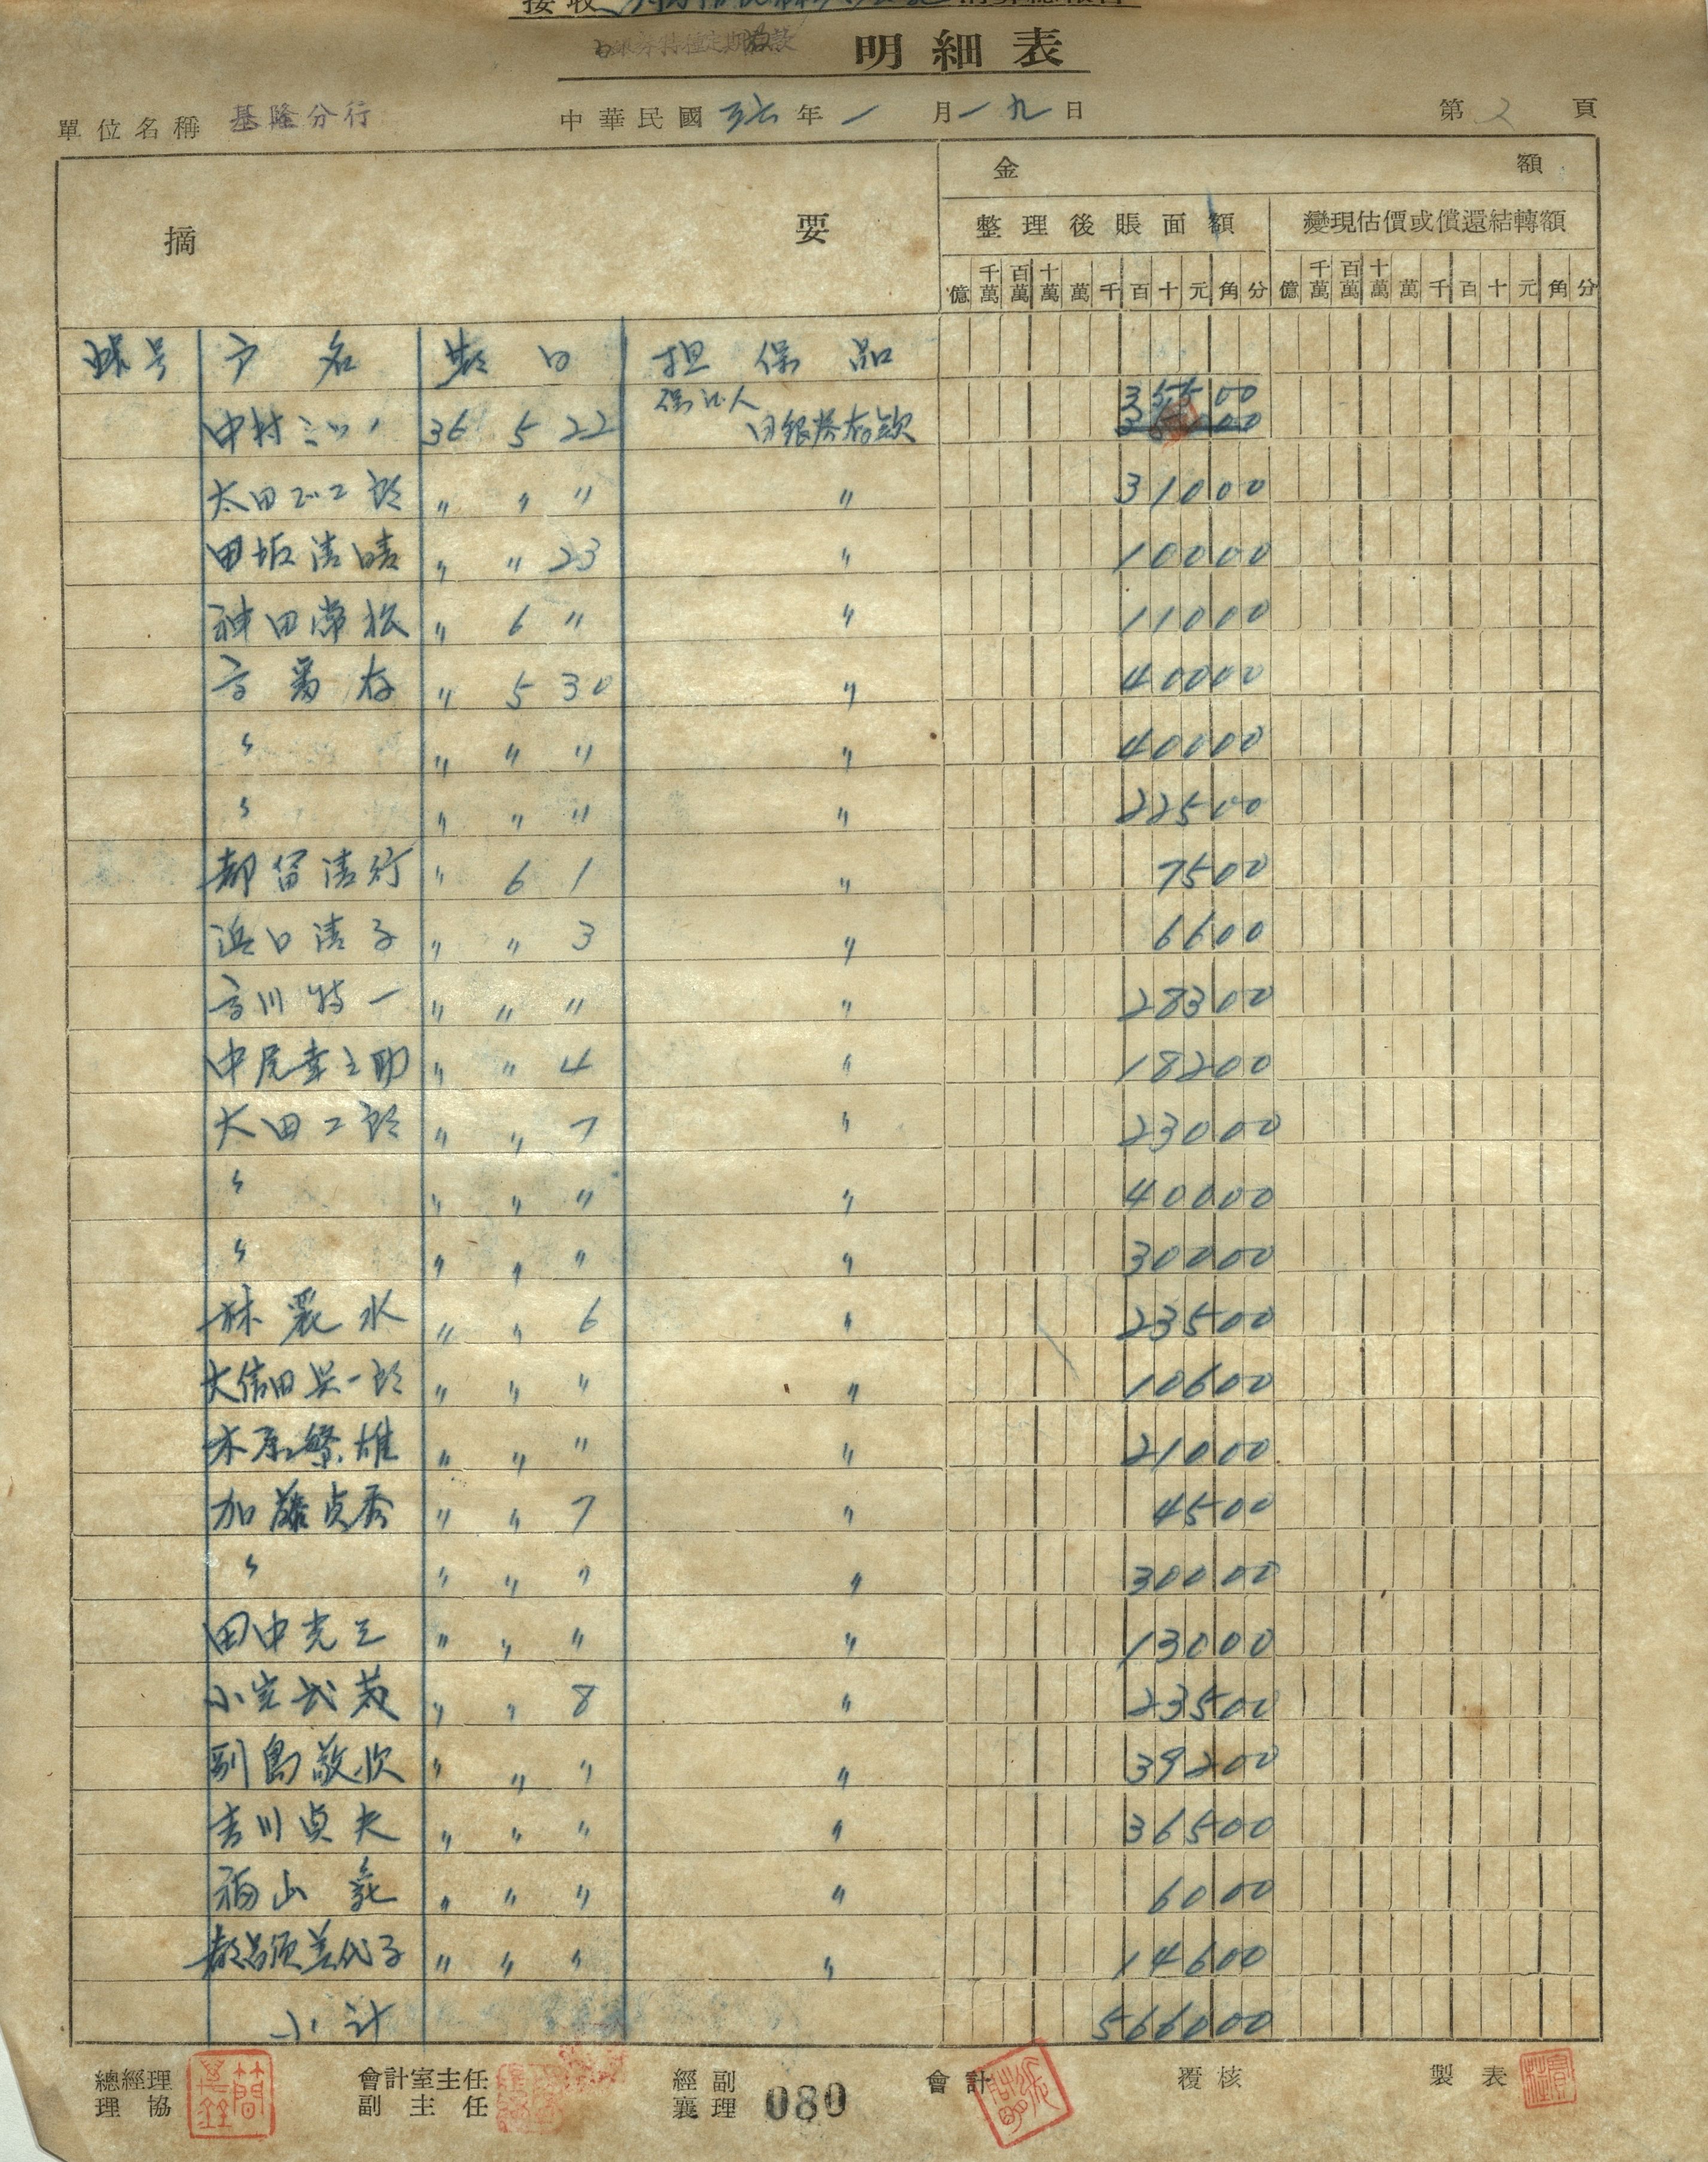 明細表
單位名稱 基隆分行 中華民國 年一月一九日 第2頁
摘要 金額
整理後賬面額 變現估價或償還結轉額
億 千萬 百萬 十萬 萬 千 百 十 元 角 分 億 千萬 百萬 十萬 萬 千 百 十 元 角 分
號 户名 日 担保品
保证人 35500
中村ミツノ 36 5 22 日銀券存款
太田正二郎 〃 〃 〃 〃 31000
田坂清晴 〃 〃 23 〃 10000
神田常松 〃 6 〃 〃 11000
〃 5 30 〃 40000
〃 〃 〃 〃 〃 40000
〃 〃 〃 〃 〃 22500
都留清行 〃 6 1 〃 7500
浜口清子 〃 〃 3 〃 6600
吉川特一 〃 〃 〃 〃 28300
中尾幸之助 〃 〃 4 〃 18200
太田二郎 〃 〃 7 〃 23000
〃 〃 〃 〃 〃 40000
〃 〃 〃 〃 〃 30000
林 水 〃 〃 6 〃 23500
大信田 一郎 〃 〃 〃 〃 10600
木原繁雄 〃 〃 〃 〃 21000
加藤貞秀 〃 〃 7 〃 4500
〃 〃 〃 〃 〃 30000
田中光三 〃 〃 〃 〃 13000
小宮武茂 〃 〃 8 〃 23500
副島敬次 〃 〃 〃 〃 39200
吉川貞夫 〃 〃 〃 〃 36500
福山 〃 〃 〃 〃 6000
美代子 〃 〃 〃 〃 14600
小计 566000
總經理 會計室主任 經副 會計 覆核 製表
理協 副主任 襄理 080